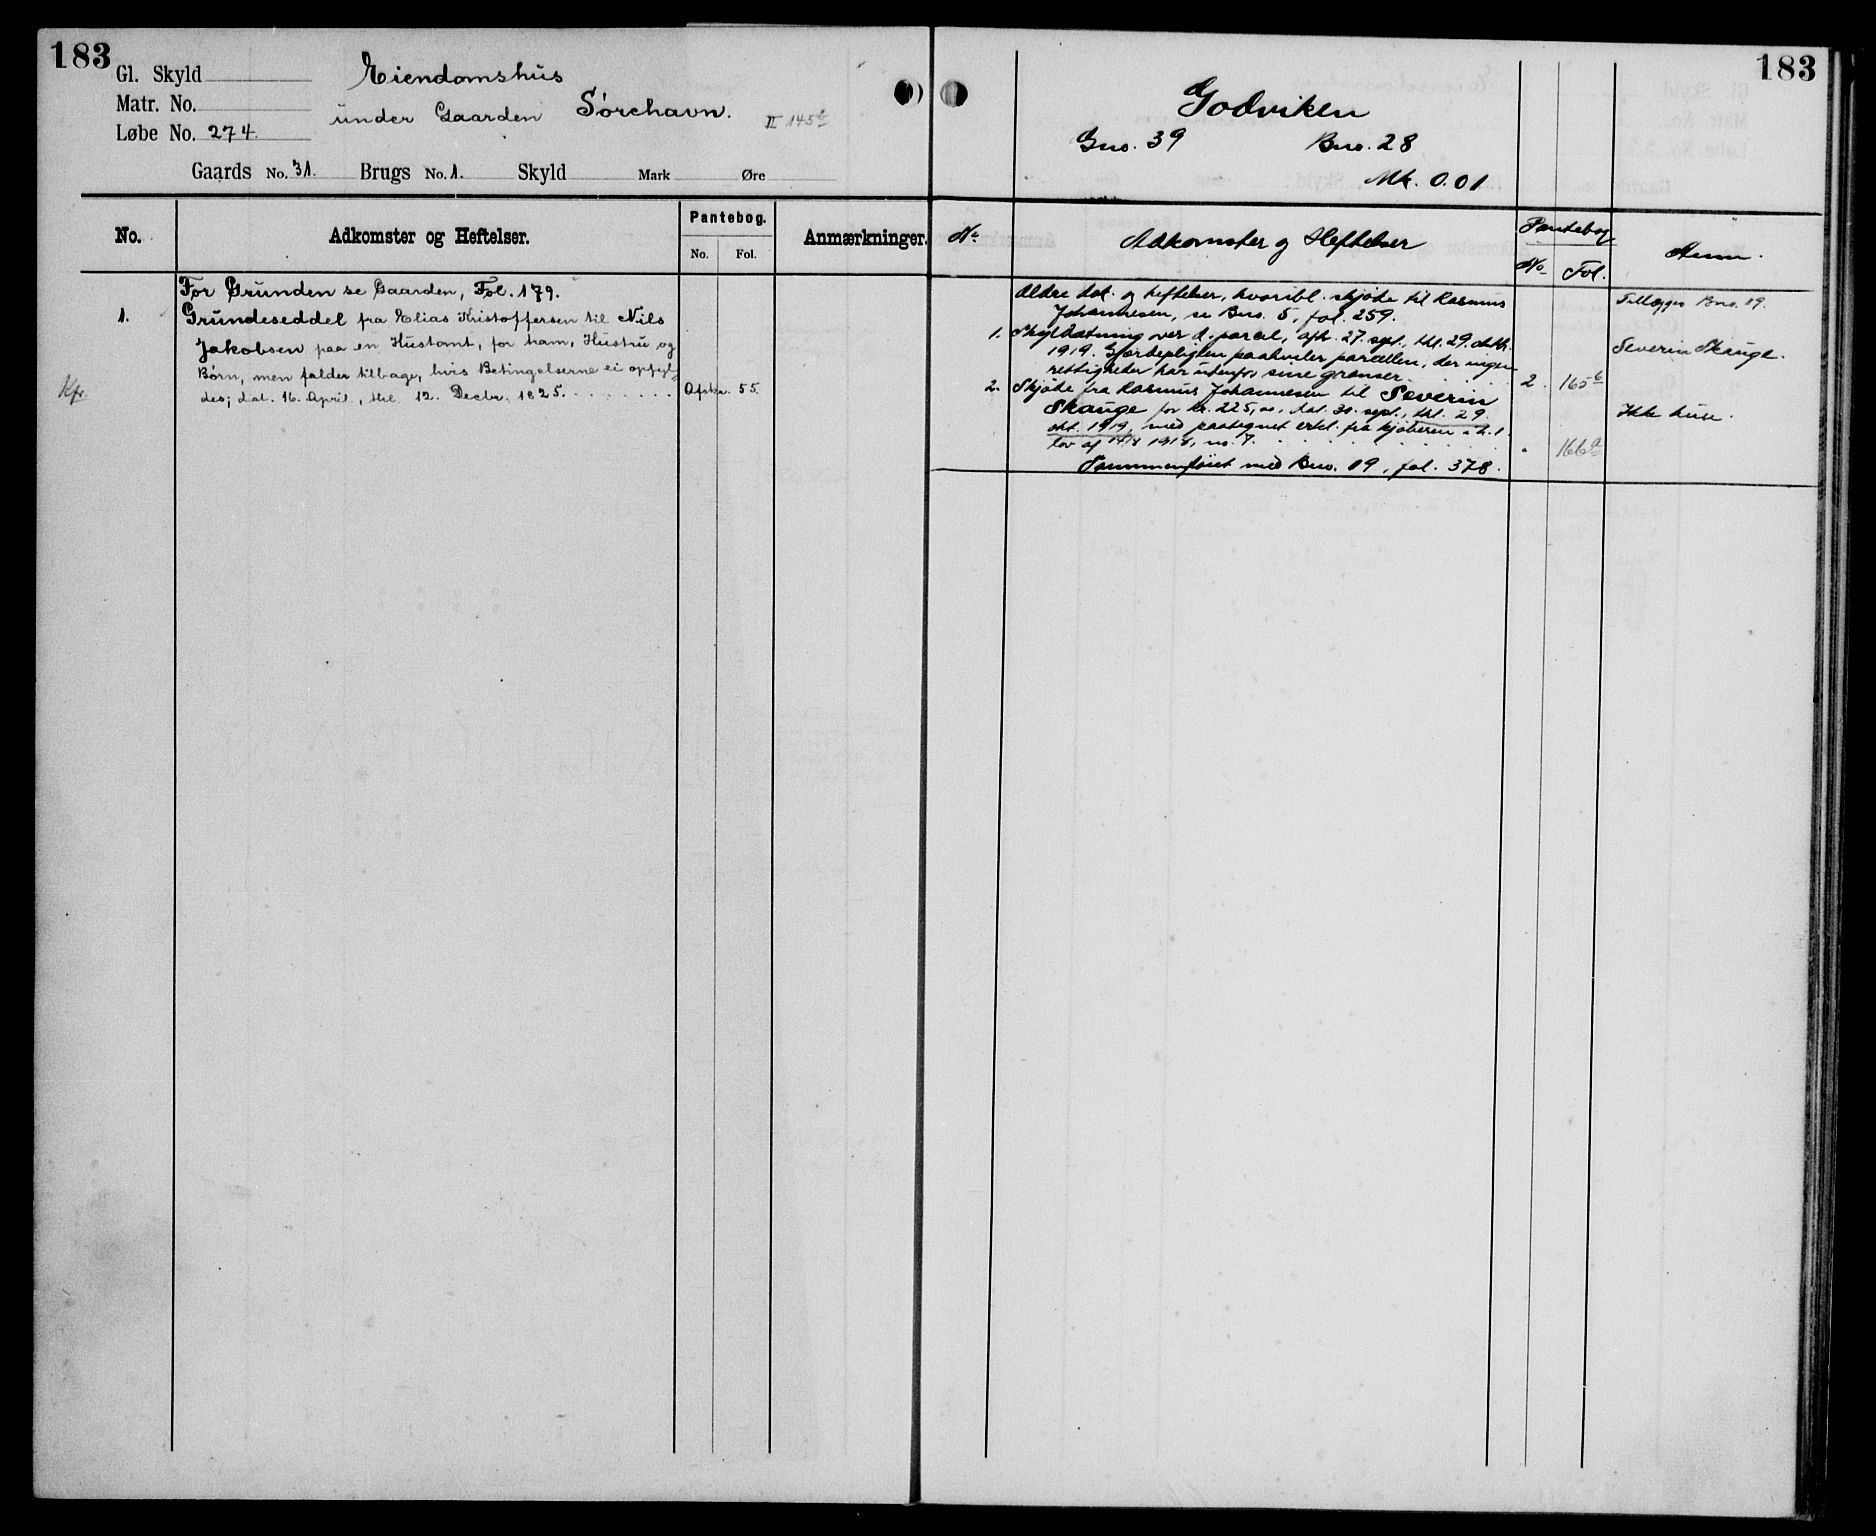 183
Gl. Skyld
Matr. No.
Løbe No. 274.
Eiendomshus
under Gaarden Sørehavn.
II 145b
Gaards No. 31. Brugs No. 1. Skyld Mark Øre
No. Adkomster og Heftelser. Pantebog. Anmærkninger.
No. Fol.
For Grunden se Gaarden, Fol. 179.
1. Grundeseddel fra Elias Kristoffersen til Nils
Jakobsen paa en Hustomt, for ham, Hustru og
Børn, men falder tilbage, hvis Betingelserne ei opfyl-
des; dat. 16. April, thl. 12. Decbr. 1825. . . . . . . . Afskr. 55.
Kfr.
183
Godviken
Gno. 39 Bno. 28
Mk. 0.01
No. Adkomster og Heftelser Pantebog Anm.
No Fol.
Ældre dok. og heftelser, hvoribl. skjøte til Rasmus
Johannesen, se Bno. 5, fol. 259.
Tillægges Bno. 19.
1. Skylddatning over d. parcel, afh. 27. sept., thl. 29. oktb.
1919. Gjærdepligten paahviler parcellen, der ingen
rettigheter har utenfor sine grænser. 2. 165b
Severin Skauge.
2. Skjøte fra Rasmus Johannesen til Severin
Skauge for kr. 225,00, dat. 30. sept., thl. 29.
okt. 1919, med paategnet erkl. fra kjøberen i h. t.
lov af 1918, no. 7. . . . . . . . . " 166a
Ikke huse.
Sammenføiet med Bno. 19, fol. 378.